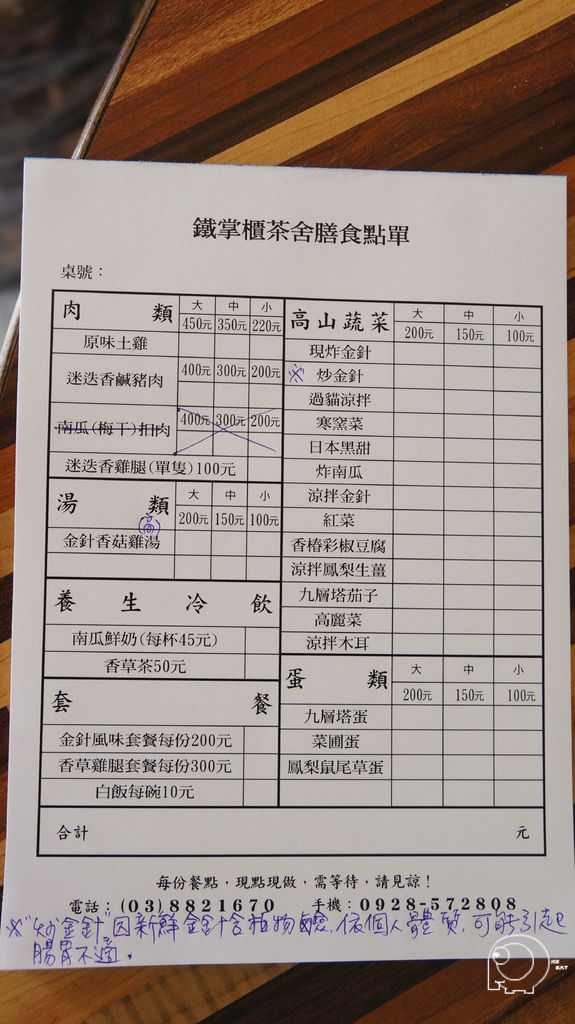 鐵掌櫃茶舍膳食點單
桌號：
肉類 大 中 小
450元 350元 220元
原味土雞
迷迭香鹹豬肉 400元 300元 200元
南瓜(梅干)扣肉 400元 300元 200元
迷迭香雞腿(單隻)100元
湯類 大 中 小
200元 150元 100元
金針香菇雞湯
養生冷飲
南瓜鮮奶(每杯45元)
香草茶50元
套餐
金針風味套餐每份200元
香草雞腿套餐每份300元
白飯每碗10元
高山蔬菜 大 中 小
200元 150元 100元
現炸金針
※ 炒金針
過貓涼拌
寒窯菜
日本黑甜
炸南瓜
涼拌金針
紅菜
香椿彩椒豆腐
涼拌鳳梨生薑
九層塔茄子
高麗菜
涼拌木耳
蛋類 大 中 小
200元 150元 100元
九層塔蛋
菜圃蛋
鳳梨鼠尾草蛋
合計 元
每份餐點，現點現做，需等待，請見諒！
電話：(03)8821670 手機：0928-572808
※"炒金針"因新鮮金針含植物鹼，依個人體質，可能引起
腸胃不適。
ICE EAT